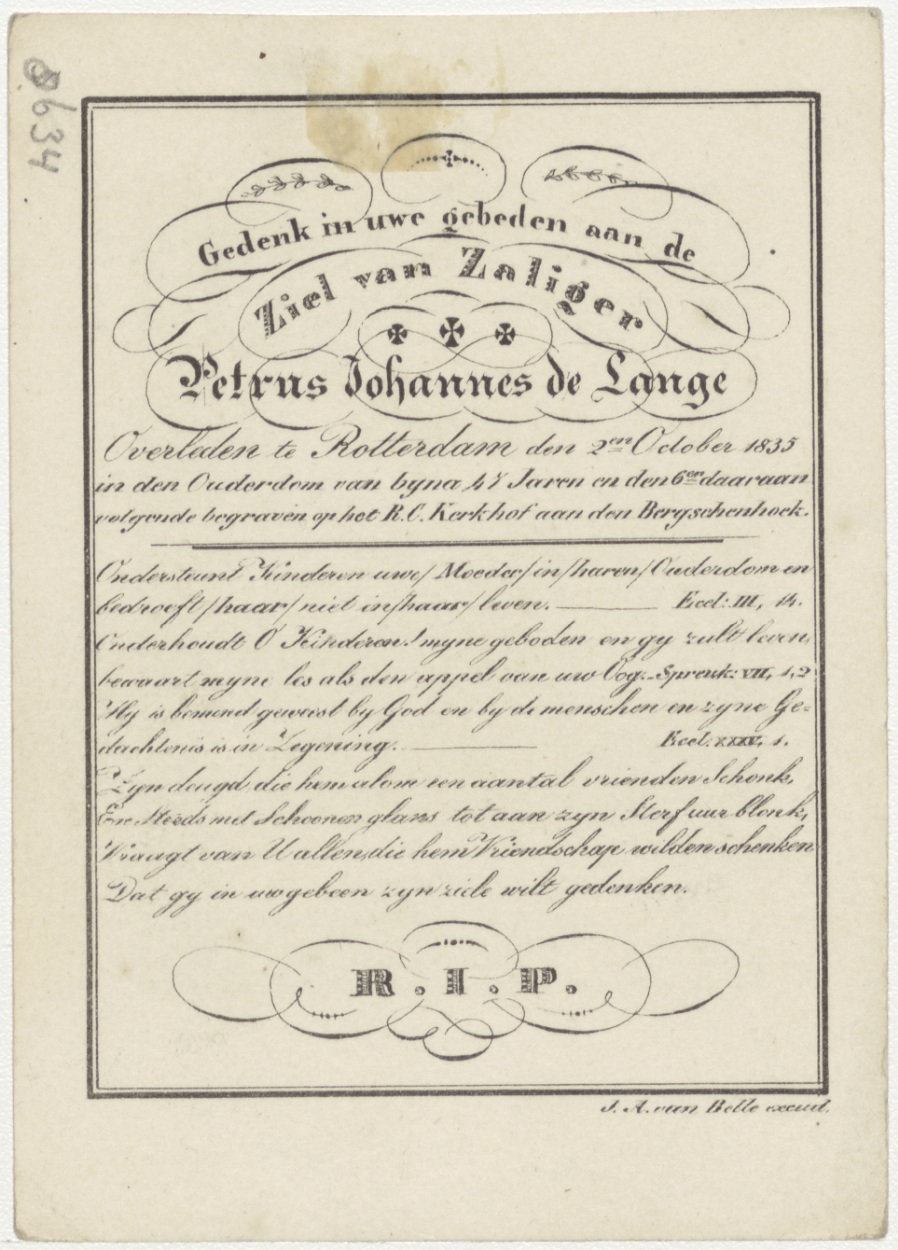 8634
Gedenk in uwe gebeden aan de
Ziel van Zaliger
Petrus Johannes de Lange
Overleden te Rotterdam den 2en October 1835
in den Ouderdom van byna 47 Jaren en den 6en daaraan
volgende begraven op het R.C. Kerkhof aan den Bergschenhoek.
Ondersteunt Kinderen uwe/ Moeder/ in/ haren/ Ouderdom en
bedroeft/ haar/ niet in/ haar/ leven. Eccl: III, 14.
Onderhoudt O Kinderen! myne geboden en gy zult leven,
bewaart myne les als den appel van uw Oog. Spreuk: VII, 1,2
Hy is bemend geweest by God en by de menschen en zyne Ge-
dachtenis is in Zegening. Eccl: XXXV, 1.
Zyn deugd die hem alom een aantal vrienden Schonk,
En Steeds met Schoonen glans tot aan zyn Sterf uur blonk,
Vraagt van U allen, die hem Vriendschap wilden schenken
Dat gy in uw gebeen zyn ziele wilt gedenken.
R.I.P.
J. A. van Belle excud.